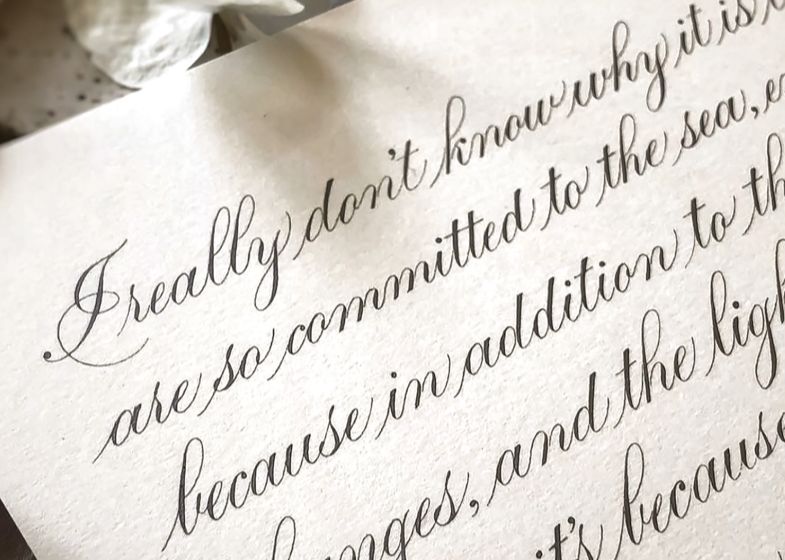 I really don't know why it is
are so committed to the sea,
because in addition to
and the
it's